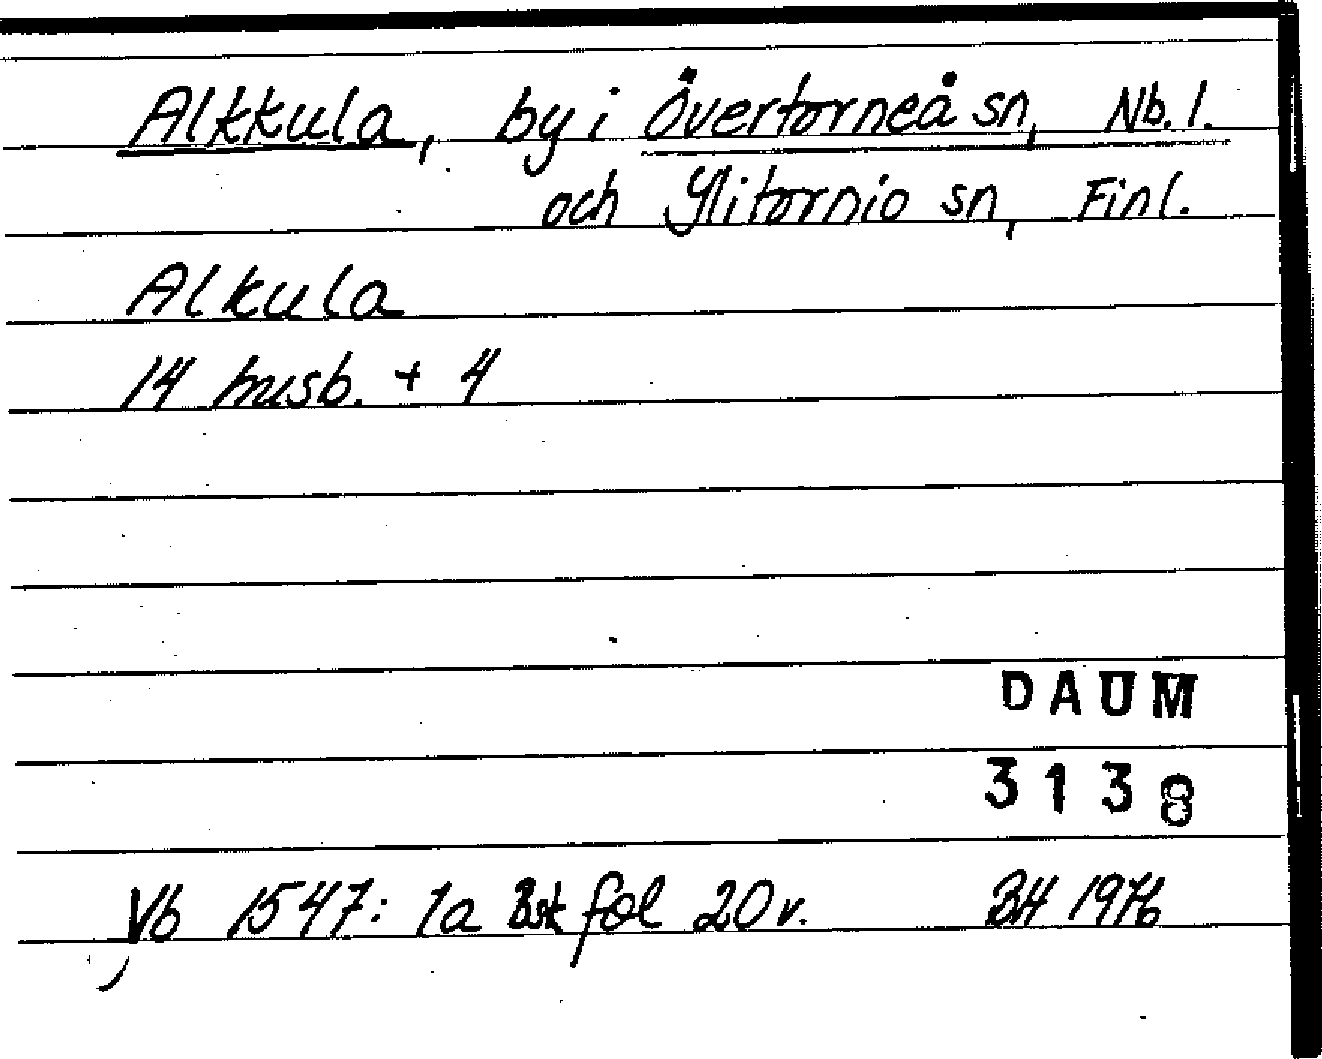 Alkkula, by i Övertorneå sn, Nb. l.
och Ylitornio sn, Finl.
Alkula
14 husb. + 4
DAUM
3138
Vb 1547: 1a Bsk fol 20 v. BH 1976